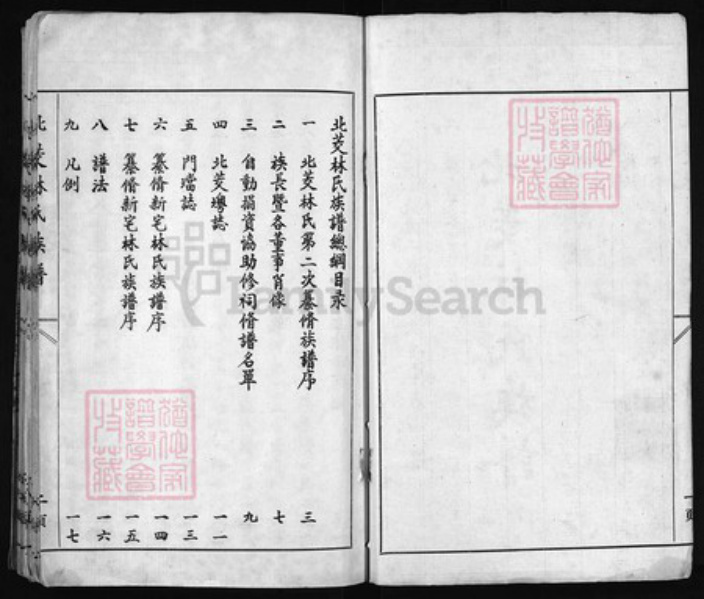 北茭林氏族譜總綱目录
一 北茭林氏第二次纂脩族譜序 三
二 族長暨各董事肖像 七
三 自動捐資協助修祠脩譜名单 九
四 北茭墺誌 一一
五 門璫誌 一三
六 纂脩新宅林氏族譜序 一四
七 纂脩新宅林氏族譜序 一五
八 譜法 一六
九 凡例 一七
北茭林氏族譜
二頁
FamilySearch